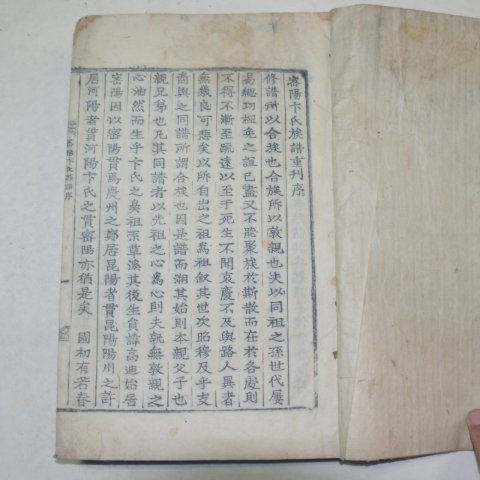 密陽卞氏族譜重刊序
修譜所以合族也合族所以敦親也夫以同祖之孫世代屢
易緦功袒免之誼已盡又不能聚族於斯散而在於各處則
不得不漸至疏遠以至于死生不聞哀慶不及與路人異者
無幾良可悲矣以所自出之祖爲祖叙其世次昭穆及乎支
裔與之同譜所謂合族也因是譜而溯其始則本親父子也
親兄弟也凡其同譜者以先祖之心爲心則夫孰無敦親之
心油然而生乎卞氏之奠祖系草溪其後生員諱高迪始居
密陽因以密陽貫焉慶州之鄭居昆陽者貫昆陽陽川之許
居河陽者貫河陽卞氏之貫密陽亦猶是矣　國初有若春
密陽卞氏族譜序